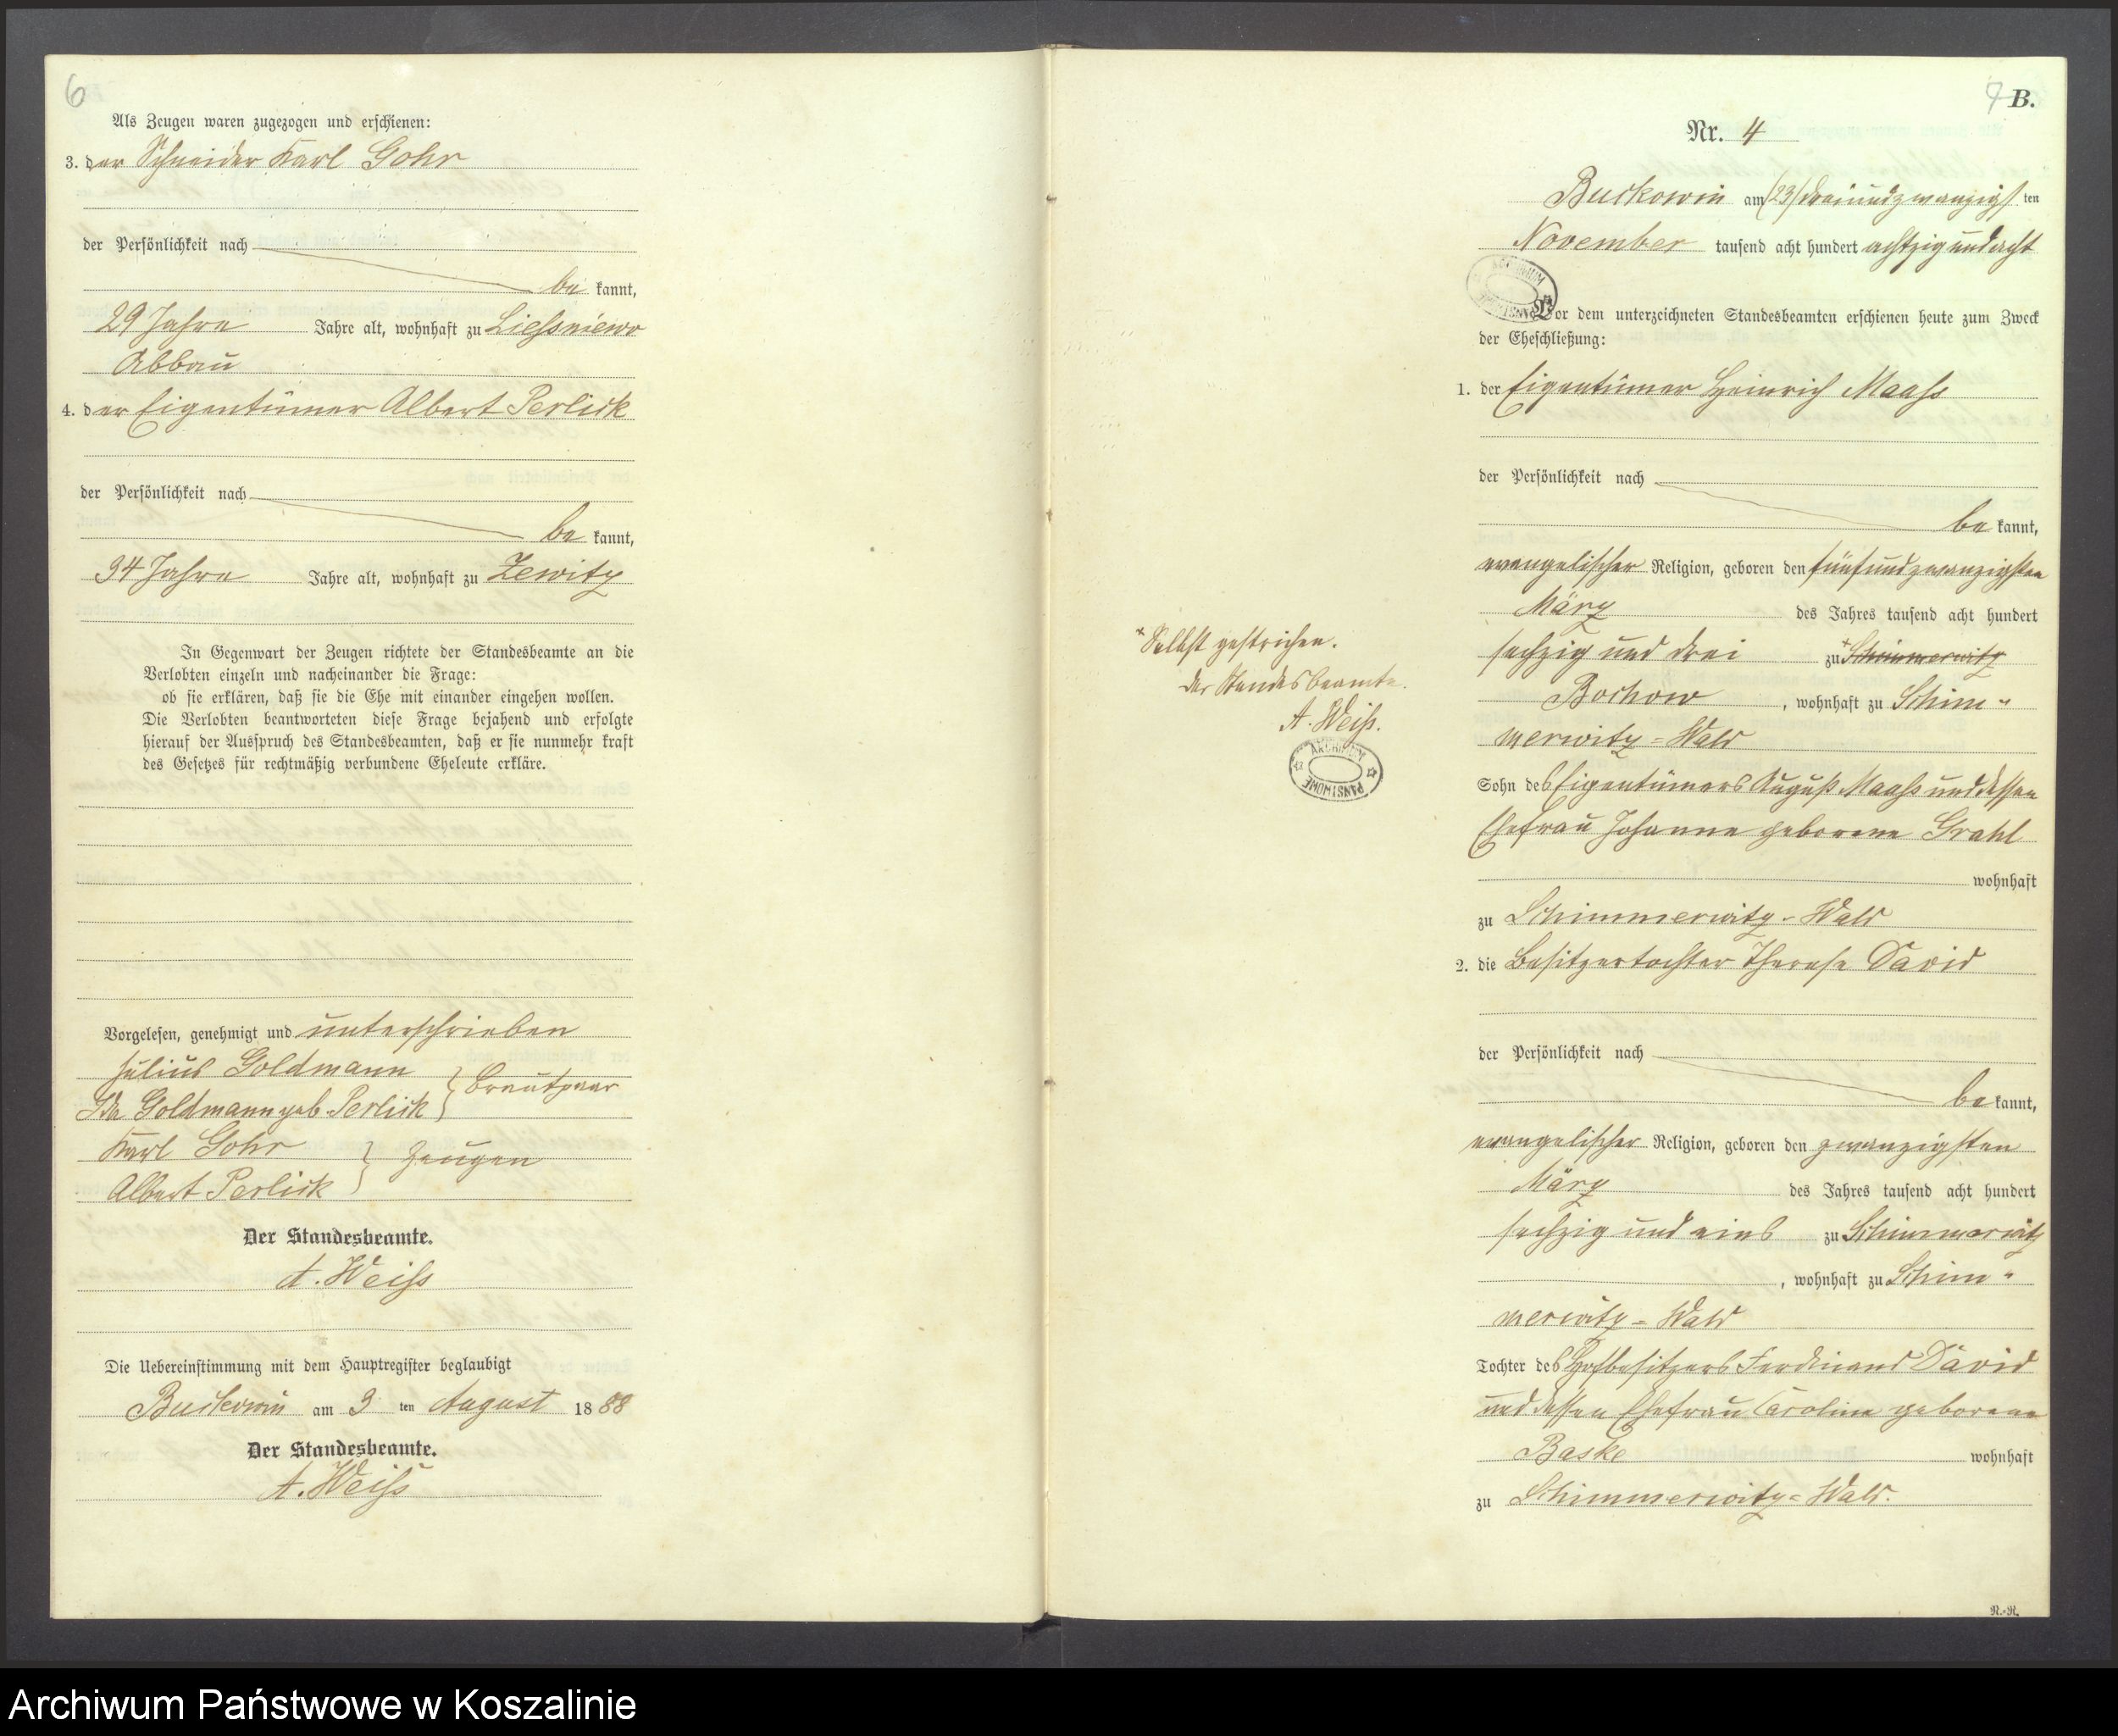 6
Als Zeugen waren zugezogen und erschienen:
3. der Schneider Karl Gohr
der Persönlichkeit nach
be kannt,
29 Jahre Jahre alt, wohnhaft zu Liessniewo
Abbau
4. der Eigentümer Albert Perlick
der Persönlichkeit nach
be kannt,
34 Jahre Jahre alt, wohnhaft zu Zewitz
In Gegenwart der Zeugen richtete der Standesbeamte an die
Verlobten einzeln und nacheinander die Frage:
ob sie erklären, daß sie die Ehe mit einander eingehen wollen.
Die Verlobten beantworteten diese Frage bejahend und erfolgte
hierauf der Ausspruch des Standesbeamten, daß er sie nunmehr kraft
des Gesetzes für rechtmäßig verbundene Eheleute erkläre.
Vorgelesen, genehmigt und unterschrieben
Julius Goldmann
Ida Goldmann geb. Perlick } Brautpaar
Karl Gohr
Albert Perlick } Zeugen
Der Standesbeamte.
A. Weiss
Die Uebereinstimmung mit dem Hauptregister beglaubigt
Buckowin am 3 ten August 1888
Der Standesbeamte.
A. Weiss
7 B.
Nr. 4
Buckowin am (23) dreiundzwanzigs ten
November tausend acht hundert achtzig und acht
ARCHIWUM PAŃSTWOWE
Vor dem unterzeichneten Standesbeamten erschienen heute zum Zweck
der Eheschließung:
1. der Eigentümer Heinrich Maass
der Persönlichkeit nach
be kannt,
evangelischer Religion, geboren den fünfundzwanzigsten
März des Jahres tausend acht hundert
sechzig und drei zu × Schimmerwitz
Bochow, wohnhaft zu Schim-
merwitz-Wald
Sohn des Eigentümers August Maass und dessen
Ehefrau Johanne geborene Grahl
wohnhaft
zu Schimmerwitz-Wald
2. die Besitzertochter Therese David
der Persönlichkeit nach
be kannt,
evangelischer Religion, geboren den zwanzigsten
März des Jahres tausend acht hundert
sechzig und eins zu Schimmerwitz
, wohnhaft zu Schim-
merwitz-Wald
Tochter des Hofbesitzers Ferdinand David
und dessen Ehefrau Caroline geborene
Baske wohnhaft
zu Schimmerwitz-Wald.
R.-R.
× Selbst gestrichen.
Der Standesbeamte.
A. Weiss.
ARCHIWUM PAŃSTWOWE
Archiwum Państwowe w Koszalinie